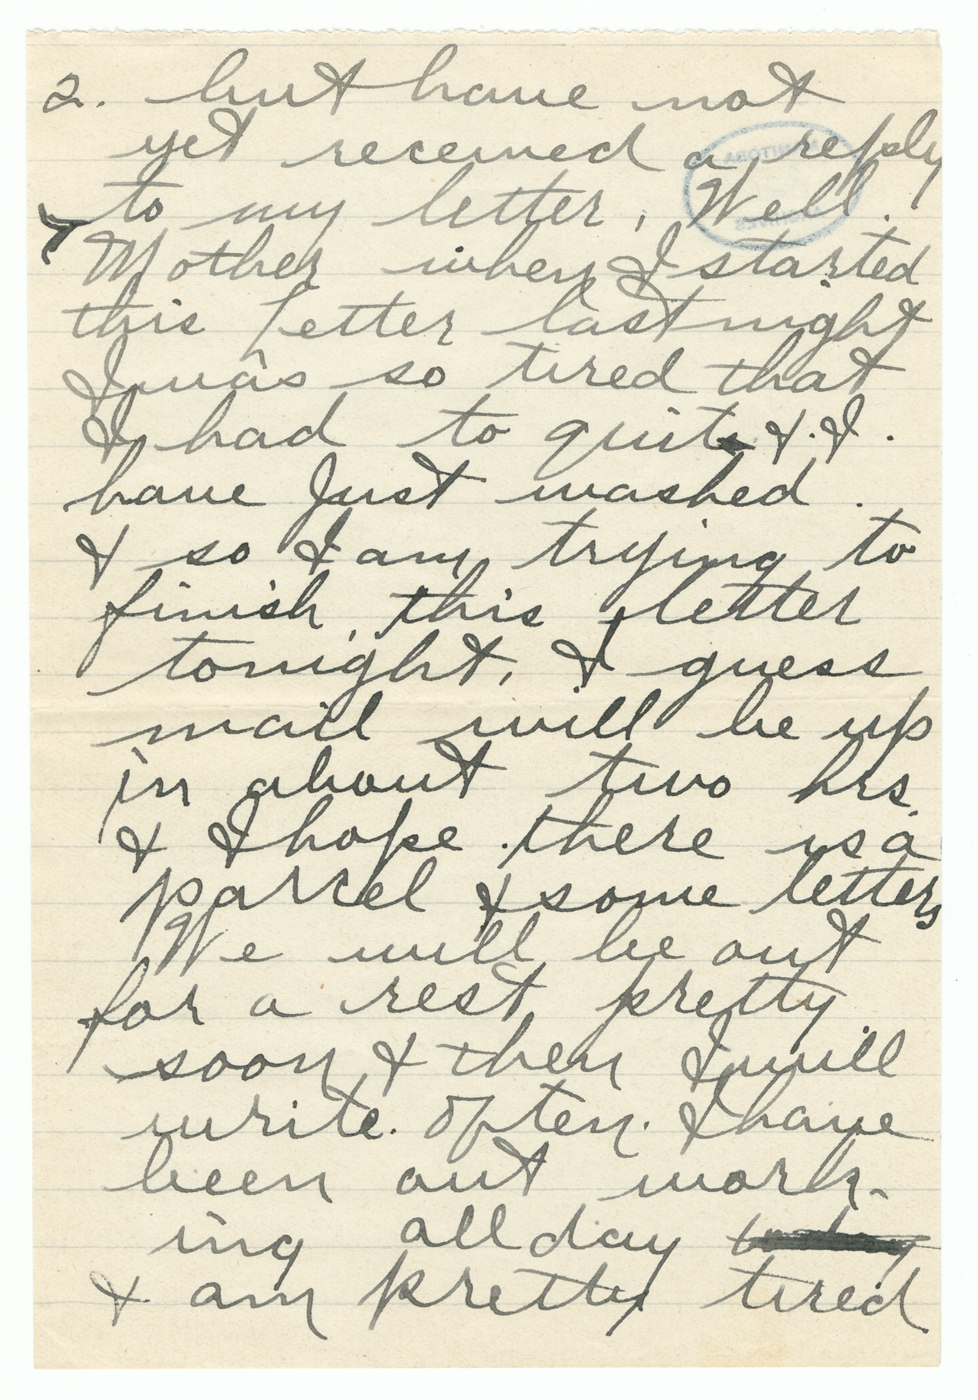 2. but have not
yet received a reply
to my letter, Well.
Mother when I started
this letter last night
I was so tired that
I had to quit & I.
have Just washed.
& so I am trying to
finish this letter
tonight, I guess
mail will be up
in about two hrs.
& I hope there is a
parcel & some letters
We will be out
for a rest pretty
soon & then I will
write. often. I have
been out work-
ing all day
& am pretty tired